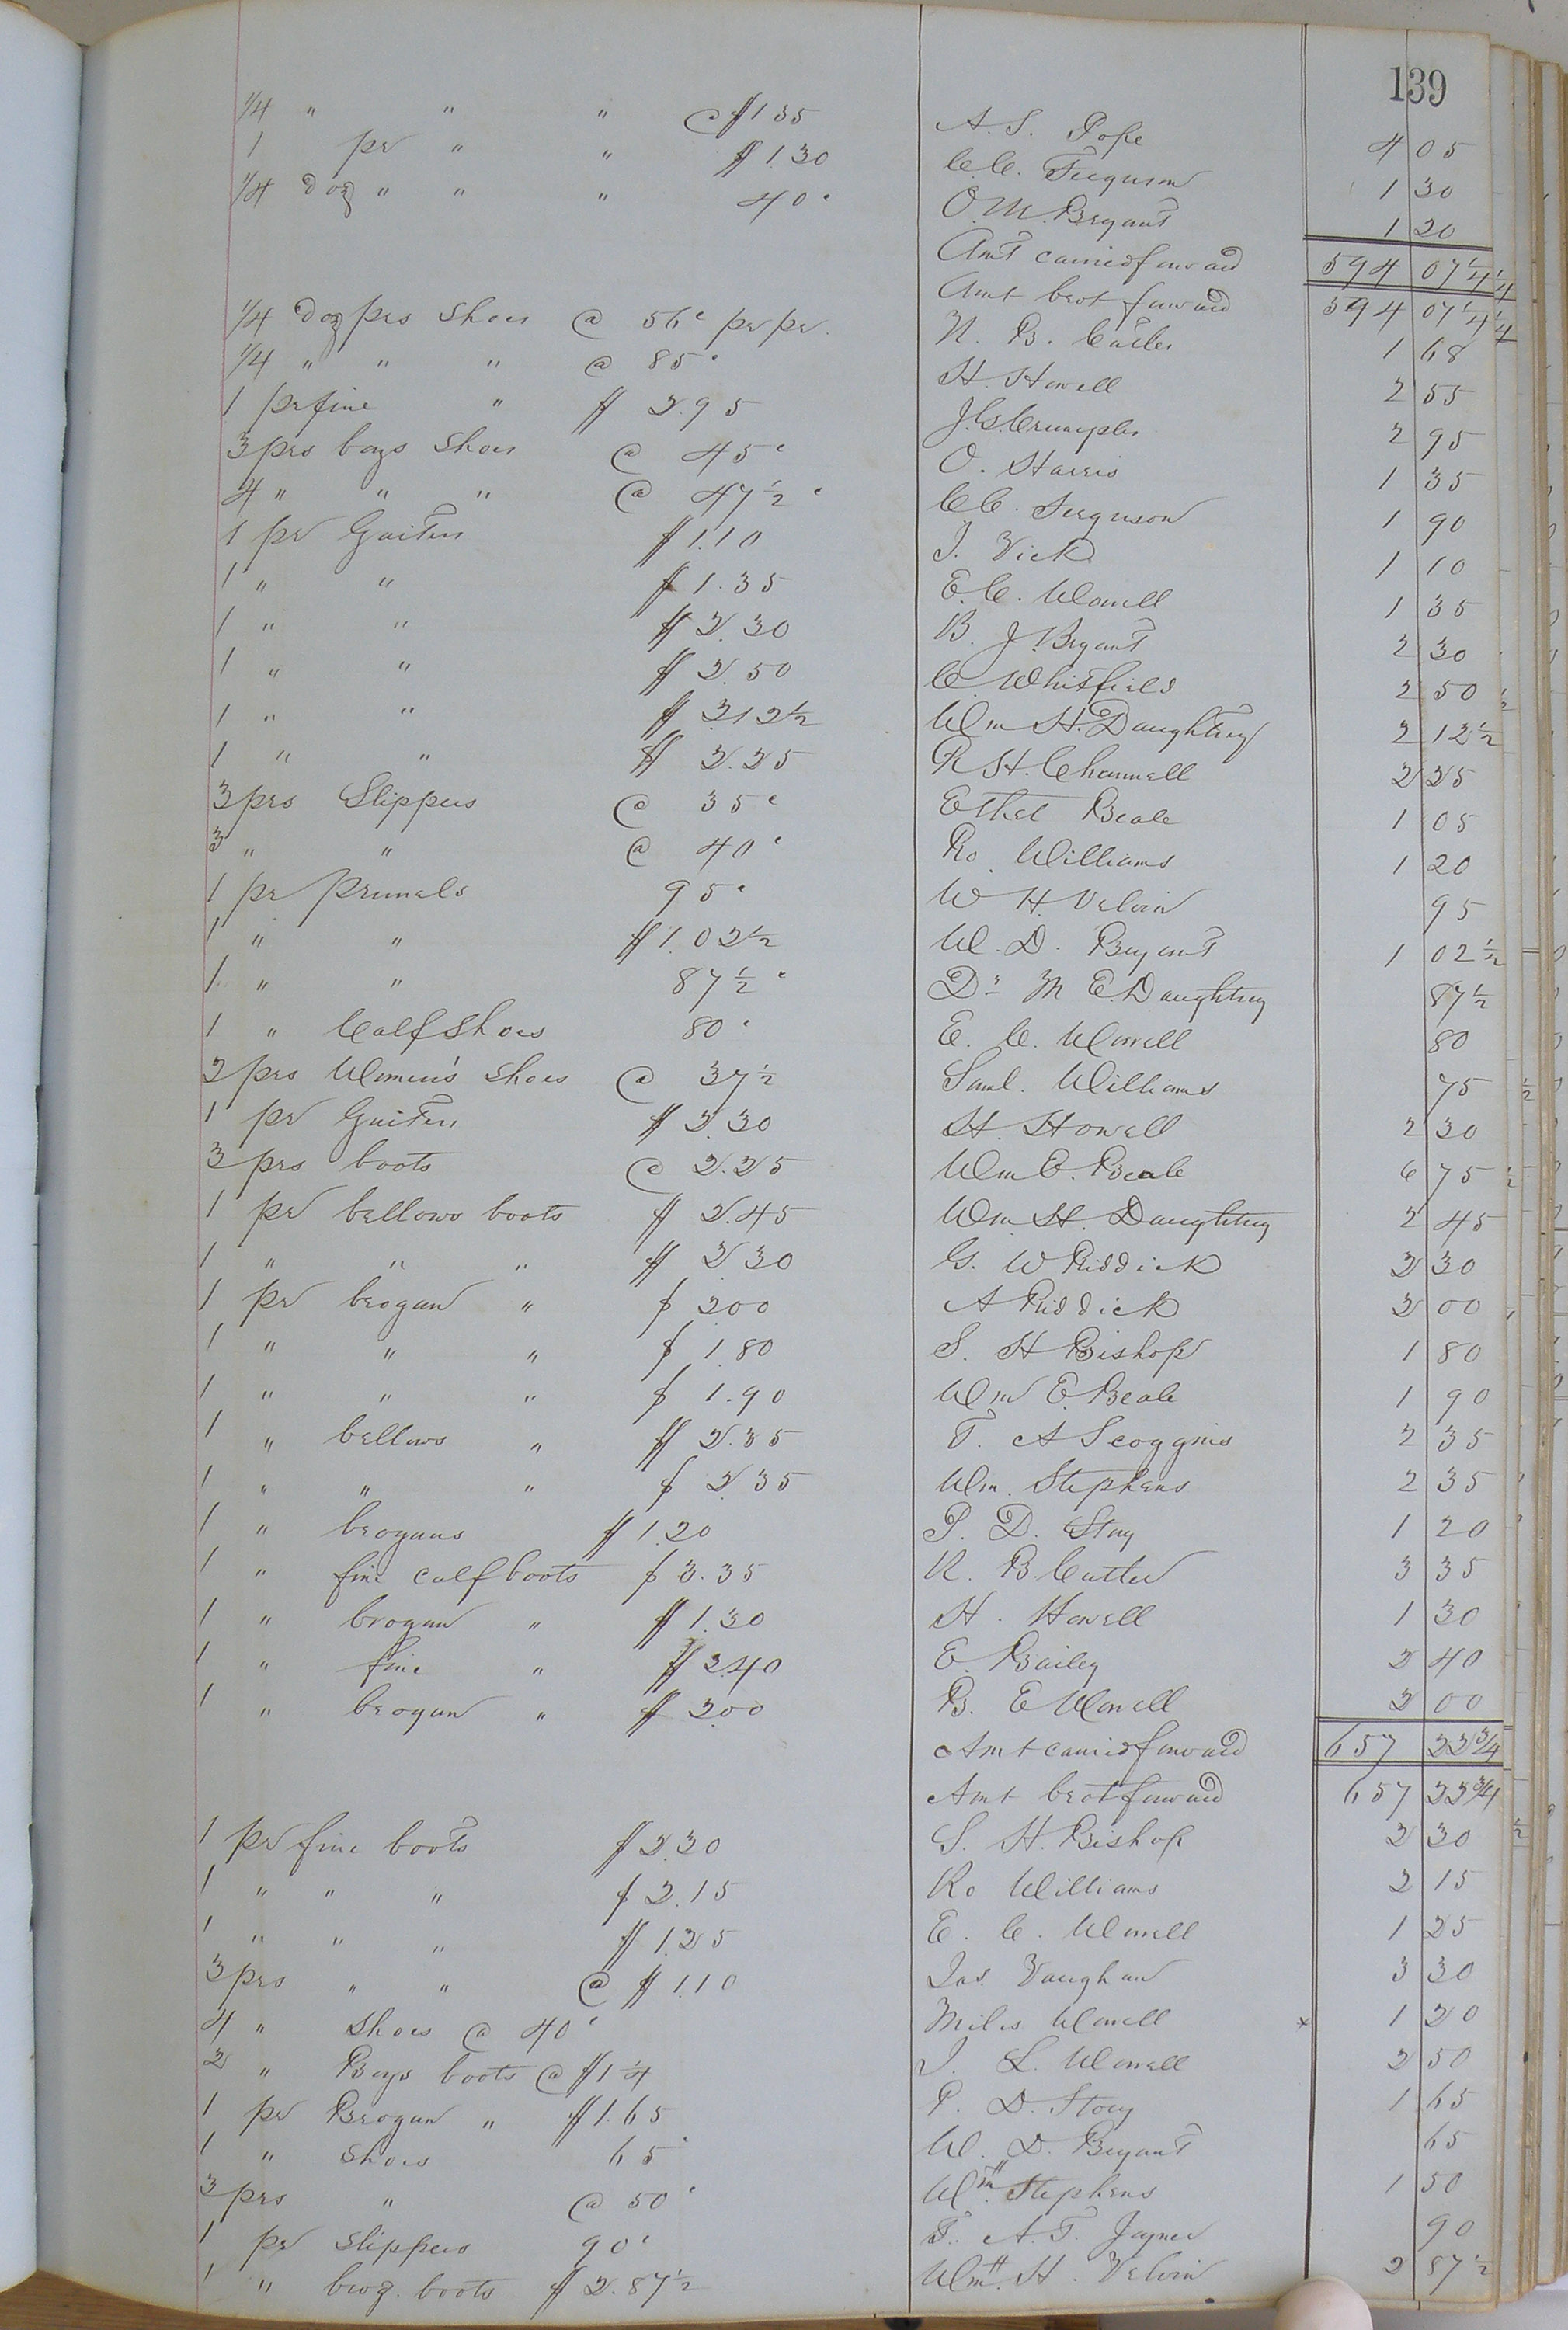 139
1/4 " " " @ $1 35 A. S. Pope 4 05
1 pr " " $1.30 C. C. Ferguson 1 30
1/4 doz " " " 40 c O. M. Bryant 1 20
Amt carried forward 594 07 1/4
Amt brot forward 594 07 1/4
1/4 doz prs shoes @ 56 c pr pr. N. B. Cutler 1 68
1/4 " " " @ 85 c H. Howell 2 55
1 pr fine " $ 2.95 J. G. Crumpler 2 95
3 prs boys shoes @ 45 c O. Harris 1 35
4 " " " @ 47 1/2 c C C. Ferguson 1 90
1 pr Gaiters $1.10 J. Vick 1 10
1 " " $1.35 E. C. Worrell 1 35
1 " " $2.30 B. J. Bryant 2 30
1 " " $2.50 C Whitfield 2 50
1 " " $ 2.12 1/2 Wm H. Daughtrey 2 12 1/2
1 " " $ 2.25 R H. Channell 2 25
3 prs Slippers @ 35 c Ethel Beale 1 05
3 " " @ 40 c Ro. Williams 1 20
1 pr prunels 95 c W H. Velvin 95
1 " " $1.02 1/2 W. D. Bryant 1 02 1/2
1 " " 87 1/2 c Dr M E. Daughtrey 87 1/2
1 " Calf shoes 80 c E. C. Worrell 80
2 prs Women's shoes @ 37 1/2 Saml. Williams 75
1 pr Gaiters $ 2.30 H. Howell 2 30
3 prs boots @ 2.25 Wm E. Beale 6 75
1 pr bellows boots $ 2.45 Wm H. Daughtrey 2 45
1 " " " $ 2 30 G. W Riddick 2 30
1 pr brogan " $ 200 A Riddick 2 00
1 " " " $ 1.80 S. H Bishop 1 80
1 " " " $ 1.90 Wm E. Beale 1 90
1 " bellows " $ 2.35 T. A Scoggins 2 35
1 " " " $ 2.35 Wm. Stephens 2 35
1 " brogans $ 1.20 P. D. Story 1 20
1 " fine calf boots $ 3.35 N. B. Cutler 3 35
1 " brogan " $ 1.30 H. Howell 1 30
1 " fine " $ 2.40 E. Bailey 2 40
1 " brogan " $ 2.00 B. E Worrell 2 00
Amt carried forward 657 22 3/4
Amt brot forward 657 22 3/4
1 pr fine boots $ 2.30 S. H. Bishop 2 30
1 " " " $ 2.15 Ro Williams 2 15
1 " " " $ 1.25 E. C. Worrell 1 25
3 prs " " @ $ 1.10 Jas. Vaughan 3 30
4 " shoes @ 40 c Miles Worrell x 1 20
2 " Boys boots @ $1 1/4 J. L. Worrell 2 50
1 pr Brogan " $1.65 P. D. Story 1 65
1 " shoes 65 c W. D. Bryant 65
3 prs " @ 50 c Wm. Stephens 1 50
1 pr slippers 90 c T. A. T. Joyner 90
1 " brog. boots $ 2.87 1/2 Wm. H. Velvin 2 87 1/2